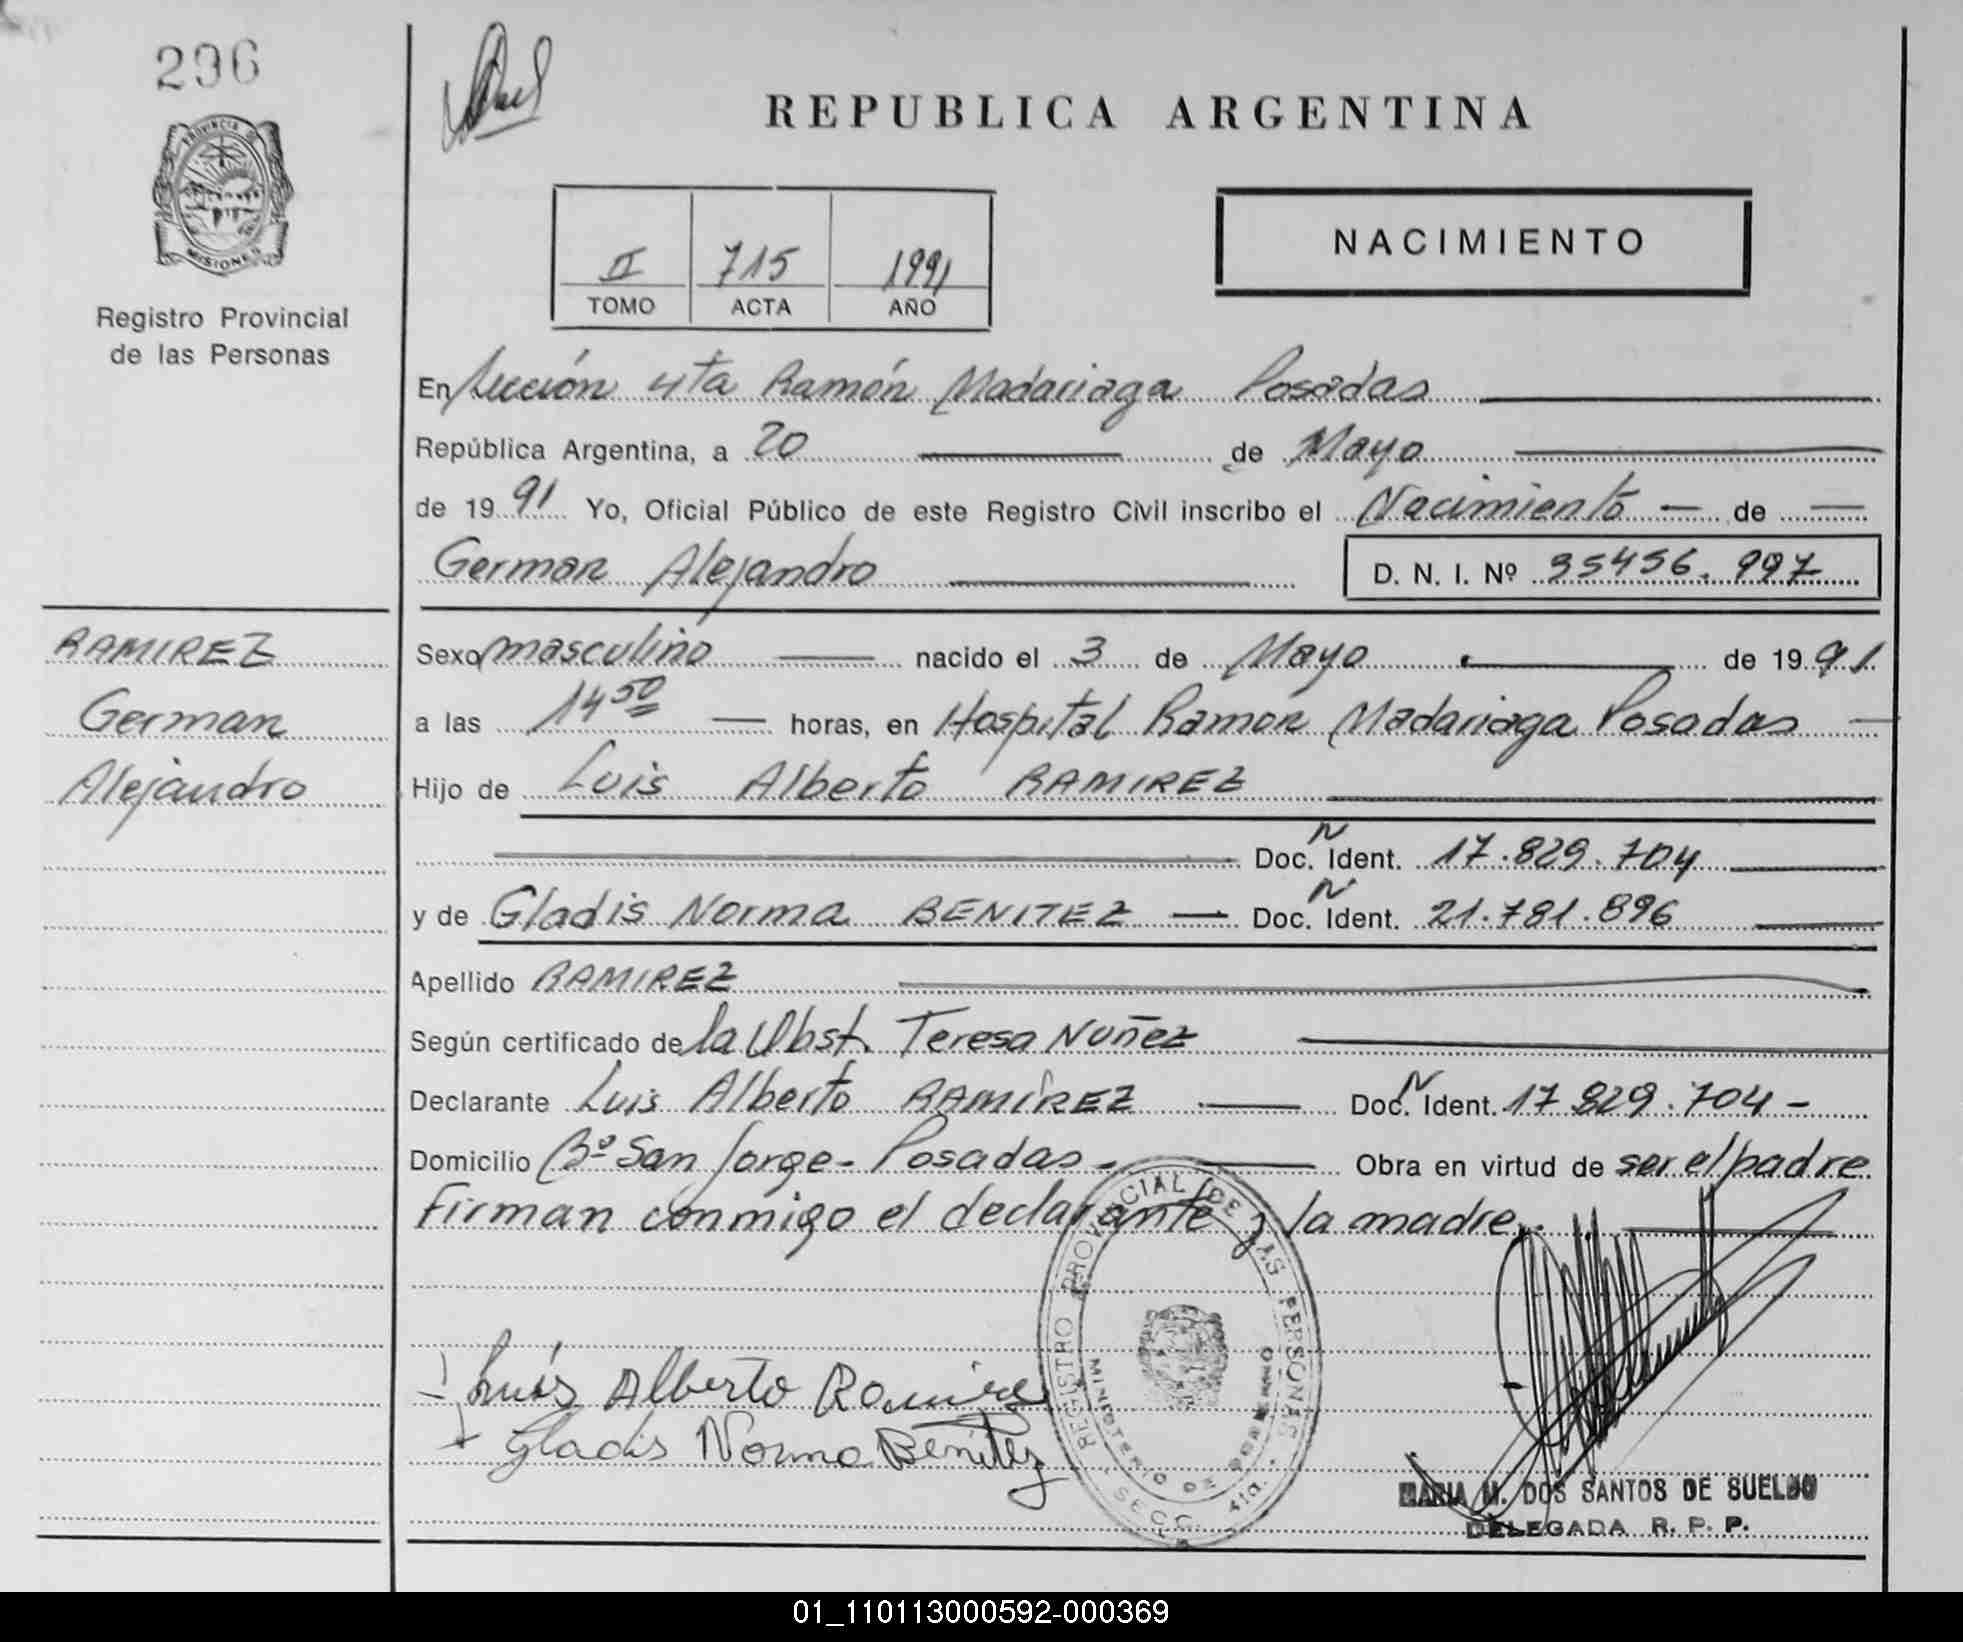 296
REPUBLICA ARGENTINA
PROVINCIA DE
MISIONES
Registro Provincial
de las Personas
II 715 1991
TOMO ACTA AÑO
NACIMIENTO
En Sección 4ta Ramón Madariaga Posadas
República Argentina, a 20 de Mayo
de 1991 Yo, Oficial Público de este Registro Civil inscribo el Nacimiento de
German Alejandro D. N. I. Nº 35456.997
RAMIREZ
German
Alejandro
Sexo masculino nacido el 3 de Mayo de 1991
a las 14 50 horas, en Hospital Ramon Madariaga Posadas
Hijo de Luis Alberto RAMIREZ
Doc. N Ident. 17.829.704
y de Gladis Norma BENITEZ Doc. N Ident. 21.781.896
Apellido RAMIREZ
Según certificado de la Obst. Teresa Nuñez
Declarante Luis Alberto RAMÍREZ Doc. N Ident. 17 829.704 -
Domicilio Bº San Jorge - Posadas - Obra en virtud de ser el padre
Firman conmigo el declarante y la madre.
Luis Alberto Ramirez
Gladis Norma Benitez
REGISTRO PROVINCIAL DE LAS PERSONAS
MINISTERIO DE GOBIERNO
SECC. 4ta.
MARIA M. DOS SANTOS DE SUELDO
DELEGADA R. P. P.
01_110113000592-000369